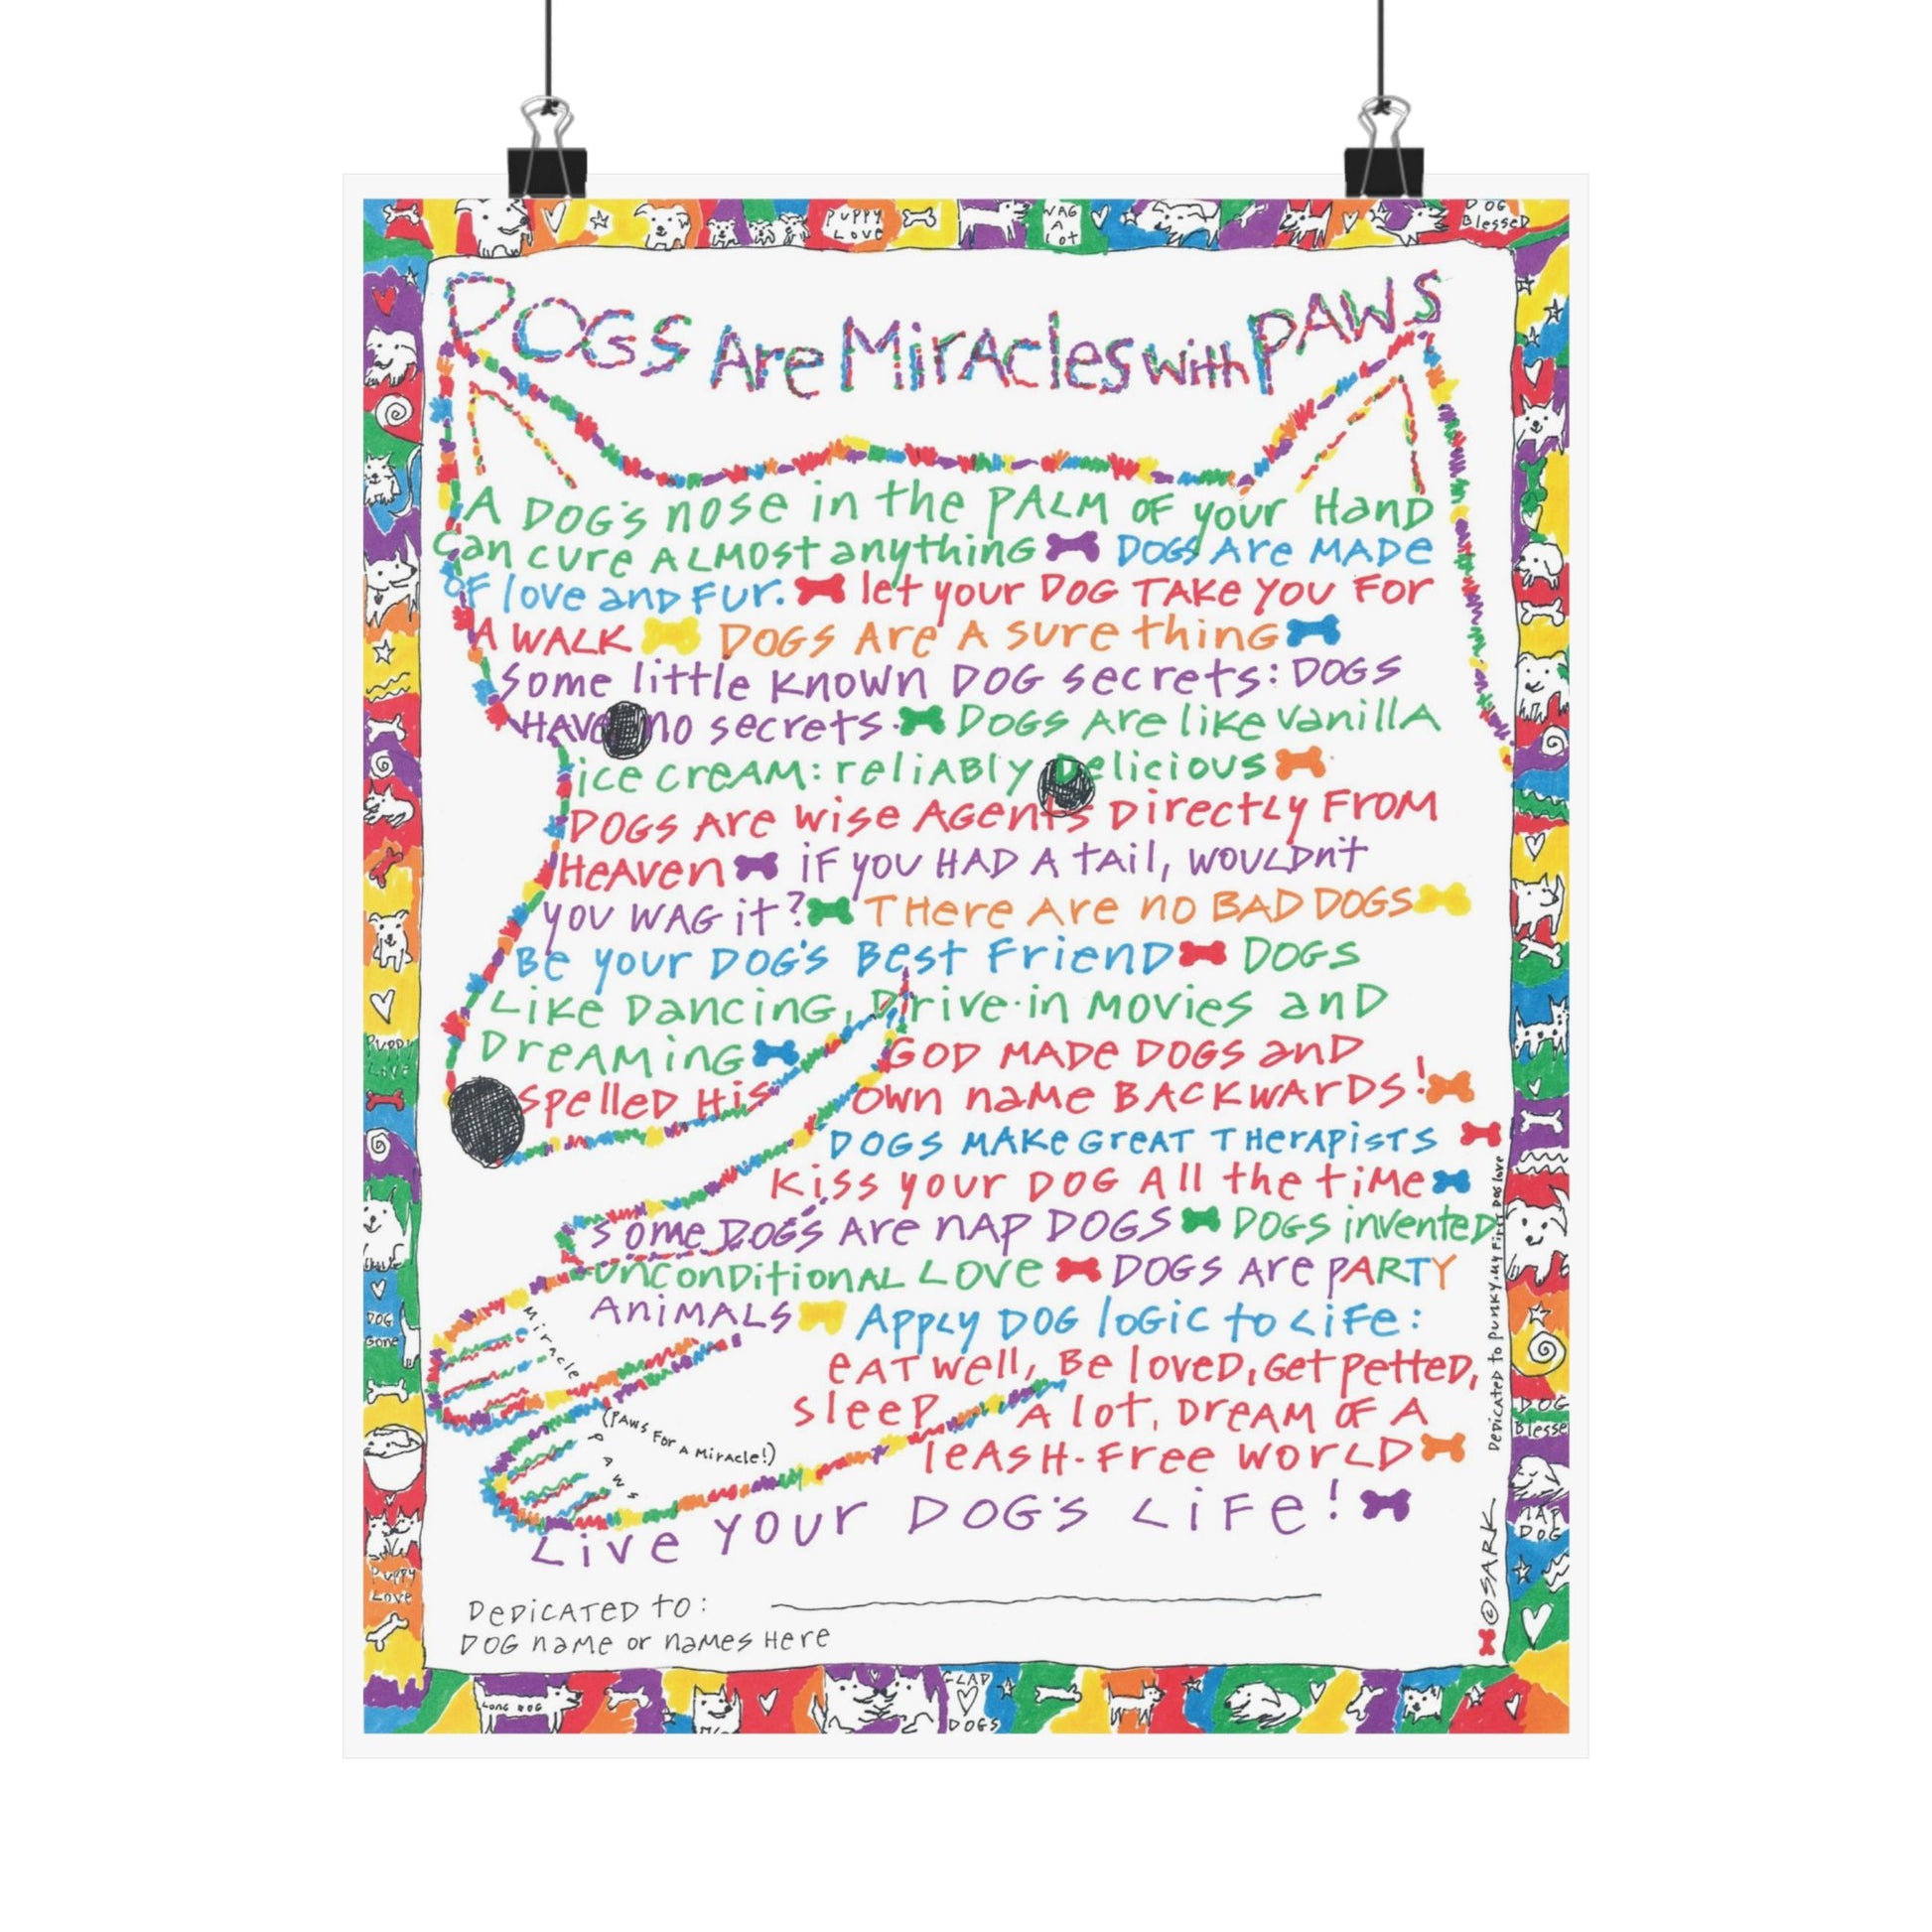 PUPPY LOVE
WAG A LOT
DOG Blessed
DOGS Are MirAcles with PAWS
A DOG'S nose in the PALM OF your HAND
Can cure ALMOST anything DOGS Are MADE
OF love and Fur. let your DOG TAKE YOU FOR
A WALK DOGS Are A sure thing
Some little KNOWN DOG secrets: DOGS
HAVE no secrets. DOGS Are like vanillA
ice creAM: reliABly Delicious
DOGS Are wise Agents Directly FROM
HeAven IF you HAD A tAil, wouldn't
you WAG it? THere Are no BAD DOGS
Be your DOG'S Best Friend DOGS
Like Dancing, Drive-in Movies and
DreAMing GOD MADE DOGS and
spelled His own name BACKWArDS!
DOGS MAKE GreAT THerAPists
Kiss your DOG All the time
Some DOGS Are nAP DOGS DOGS invented
unconDitionAL LOVE DOGS Are PARTY
AniMALS Apply DOG logic to Life:
eAT well, Be loved, Get petted,
sleep A lot, DreAM OF A
leASH-Free WorLD
Live your DOG'S LiFe!
Miracle
PAWS
(PAWS For A Miracle!)
DeDiCATED to:
DOG name or names Here
DeDiCATED to Punky, My First Dog love
©SARK
PUPPY
LOVE
DOG
Gone
Puppy
Love
DOG
Blesse
NAP
DOG
LonG DOG
GLAD
DOGS